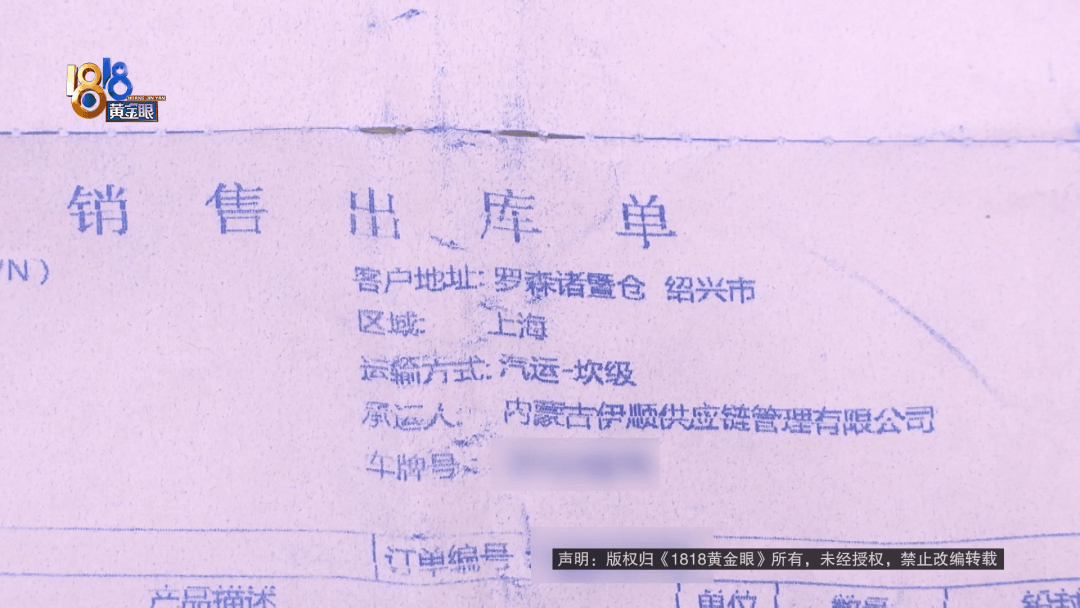 1818
HUANG JIN YAN
黄金眼
销售出库单
/N)
客户地址:罗森诸暨仓 绍兴市
区域: 上海
运输方式:汽运-坎级
承运人: 内蒙古伊顺供应链管理有限公司
车牌号:
订单编号
声明：版权归《1818黄金眼》所有，未经授权，禁止改编转载
产品描述 单位 数量